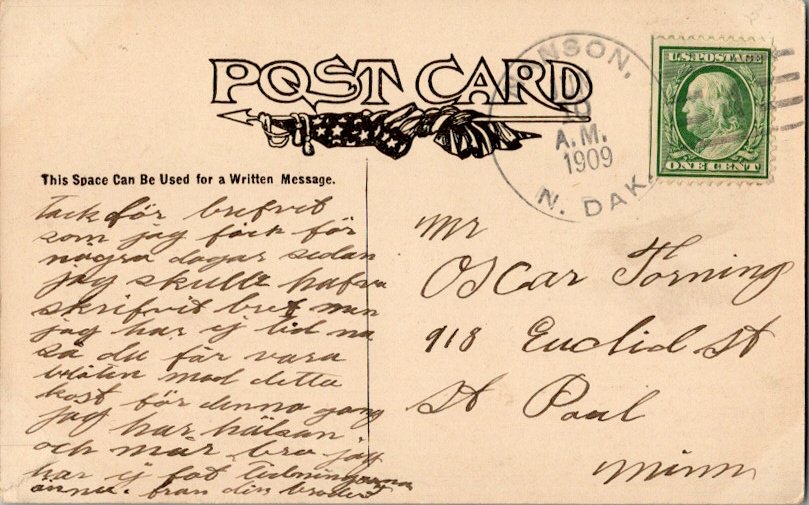 POST CARD
NSON.
10
A.M.
1909
N. DAK.
U.S. POSTAGE
ONE CENT
This Space Can Be Used for a Written Message.
Tack för brefvet
som jag fåck för
några dagar sedan
jag skulle hafva
skrifvit bref men
jag har ej tid nu
så du får vara
belåten med detta
kost för denna gang
jag har hälsan
och mår bra jag
har ej fåt tidningarna
ännu. från din broder
Mr
Oscar Torning
918 Euclid St
St Paul
Minn